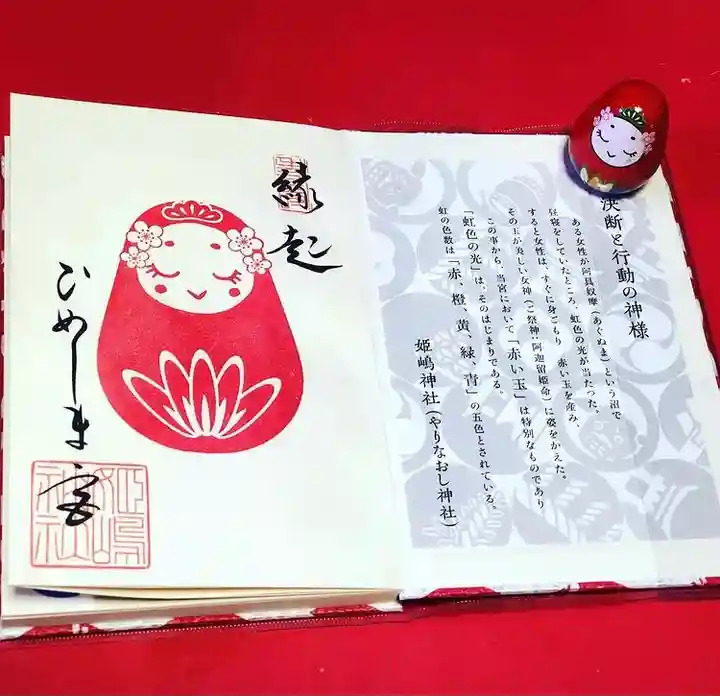 縁起
ひめしま宮
姫嶋神社
決断と行動の神様
ある女性が阿具奴摩(あぐぬま)という沼で
昼寝をしていたところ、虹色の光が当たった。
すると女性は、すぐに身ごもり 赤い玉を産み、
その玉が美しい女神(ご祭神:阿迦留姫命)に姿をかえた。
この事から、当宮において「赤い玉」は特別なものであり
「虹色の光」は、そのはじまりである。
虹の色数は「赤、橙、黄、緑、青」の五色とされている。
姫嶋神社(やりなおし神社)